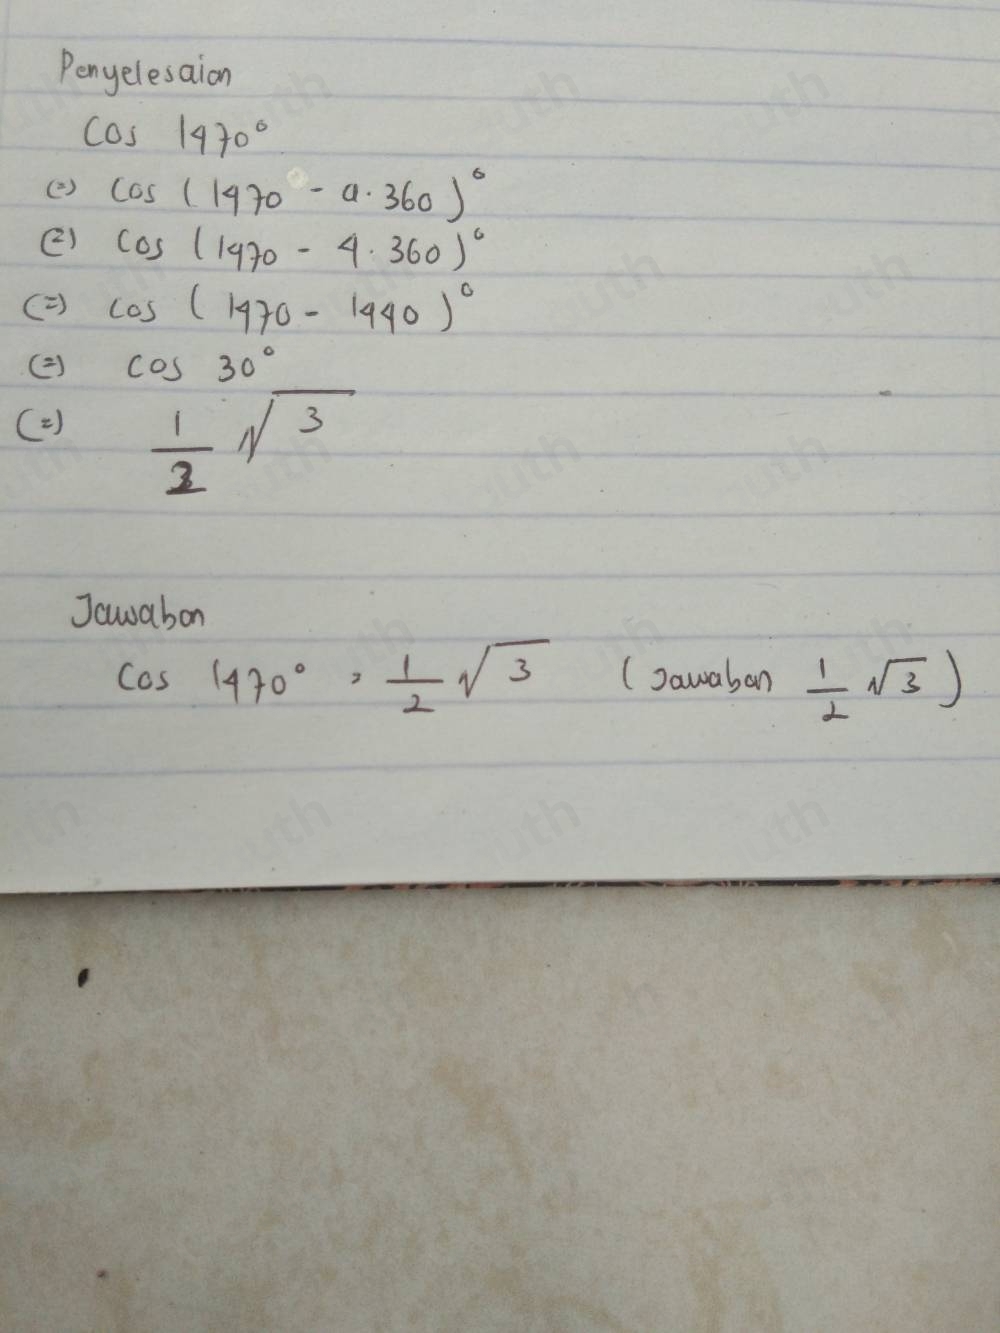 Penyelesaian
Cos 1470°
(=) Cos (1470 - a. 360)°
(=) Cos (1470 - 4. 360)°
(=) Cos (1470 - 1440)°
(=) Cos 30°
(=) 1/2 √3
Jawaban
Cos 1470° = 1/2 √3 (Jawaban 1/2 √3)